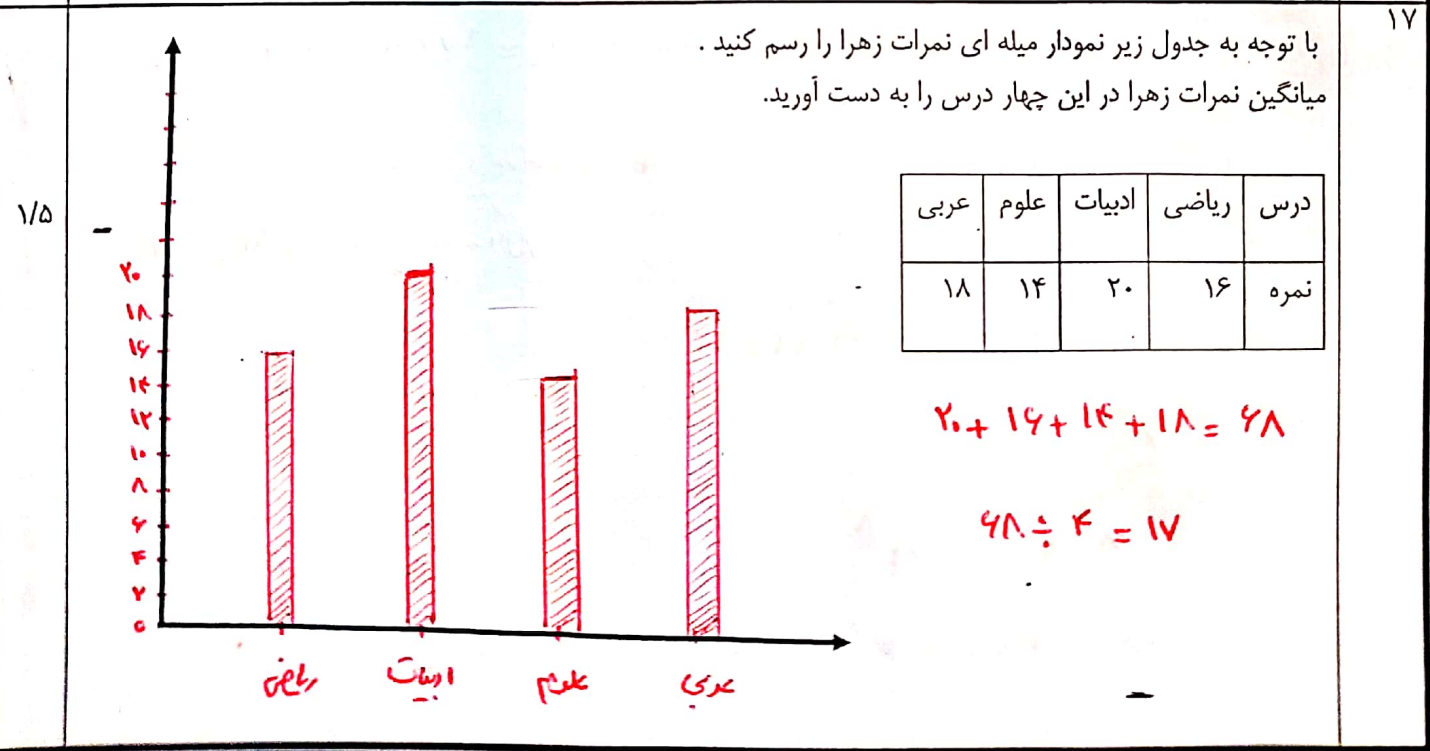 ۱۷
با توجه به جدول زیر نمودار میله ای نمرات زهرا را رسم کنید .
میانگین نمرات زهرا در این چهار درس را به دست آورید.
درس ریاضی ادبیات علوم عربی
نمره ۱۶ ۲۰ ۱۴ ۱۸
۲۰ + ۱۶ + ۱۴ + ۱۸ = ۶۸
۶۸ ÷ ۴ = ۱۷
۱/۵
۲۰
۱۸
۱۶
۱۴
۱۲
۱۰
۸
۶
۴
۲
۰
ریاضی ادبیات علوم عربی